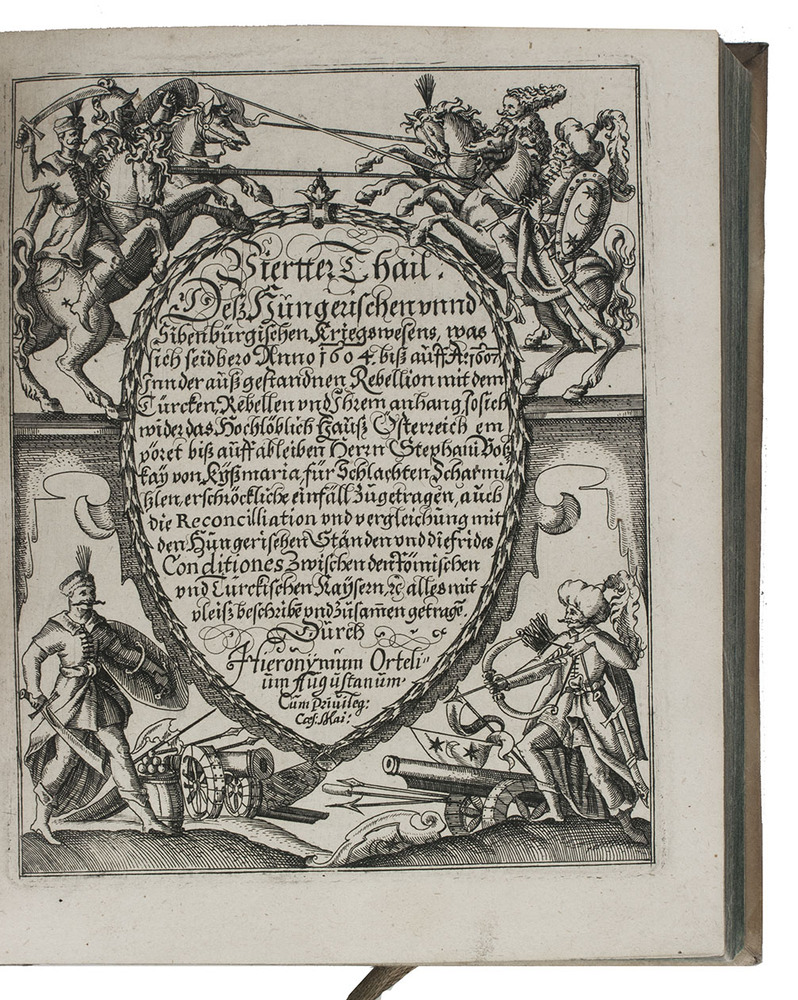 Viertter Thail.
Deß Hungerischen vnnd
Sibenbürgischen Kriegswesens, was
sich seidhero Anno 1604. biß auff A: 1607
Inn der auß gestandnen Rebellion mit dem
Türcken, Rebellen vnd Ihrem anhang, so sich
wider das Hochlöblich Hauß Österreich em
pöret biß auff ableiben Herrn Stephani Botz
kay von Kyßmaria, für Schlachten Scharmi-
tzlen, erschröckliche einfäll Zugetragen, auch
die Reconcilliation vnd vergleichung mit
den Hungerischen Ständen vnd die frides
Conditiones Zwischen den Römischen
vnd Türckischen Kaÿsern, ꝛc alles mit
vleisz beschribē vnd Zusamen getragē.
Durch
Hieronÿmum Orteli-
um Augustanum.
Cum Priuileg:
Cæs: Mai: